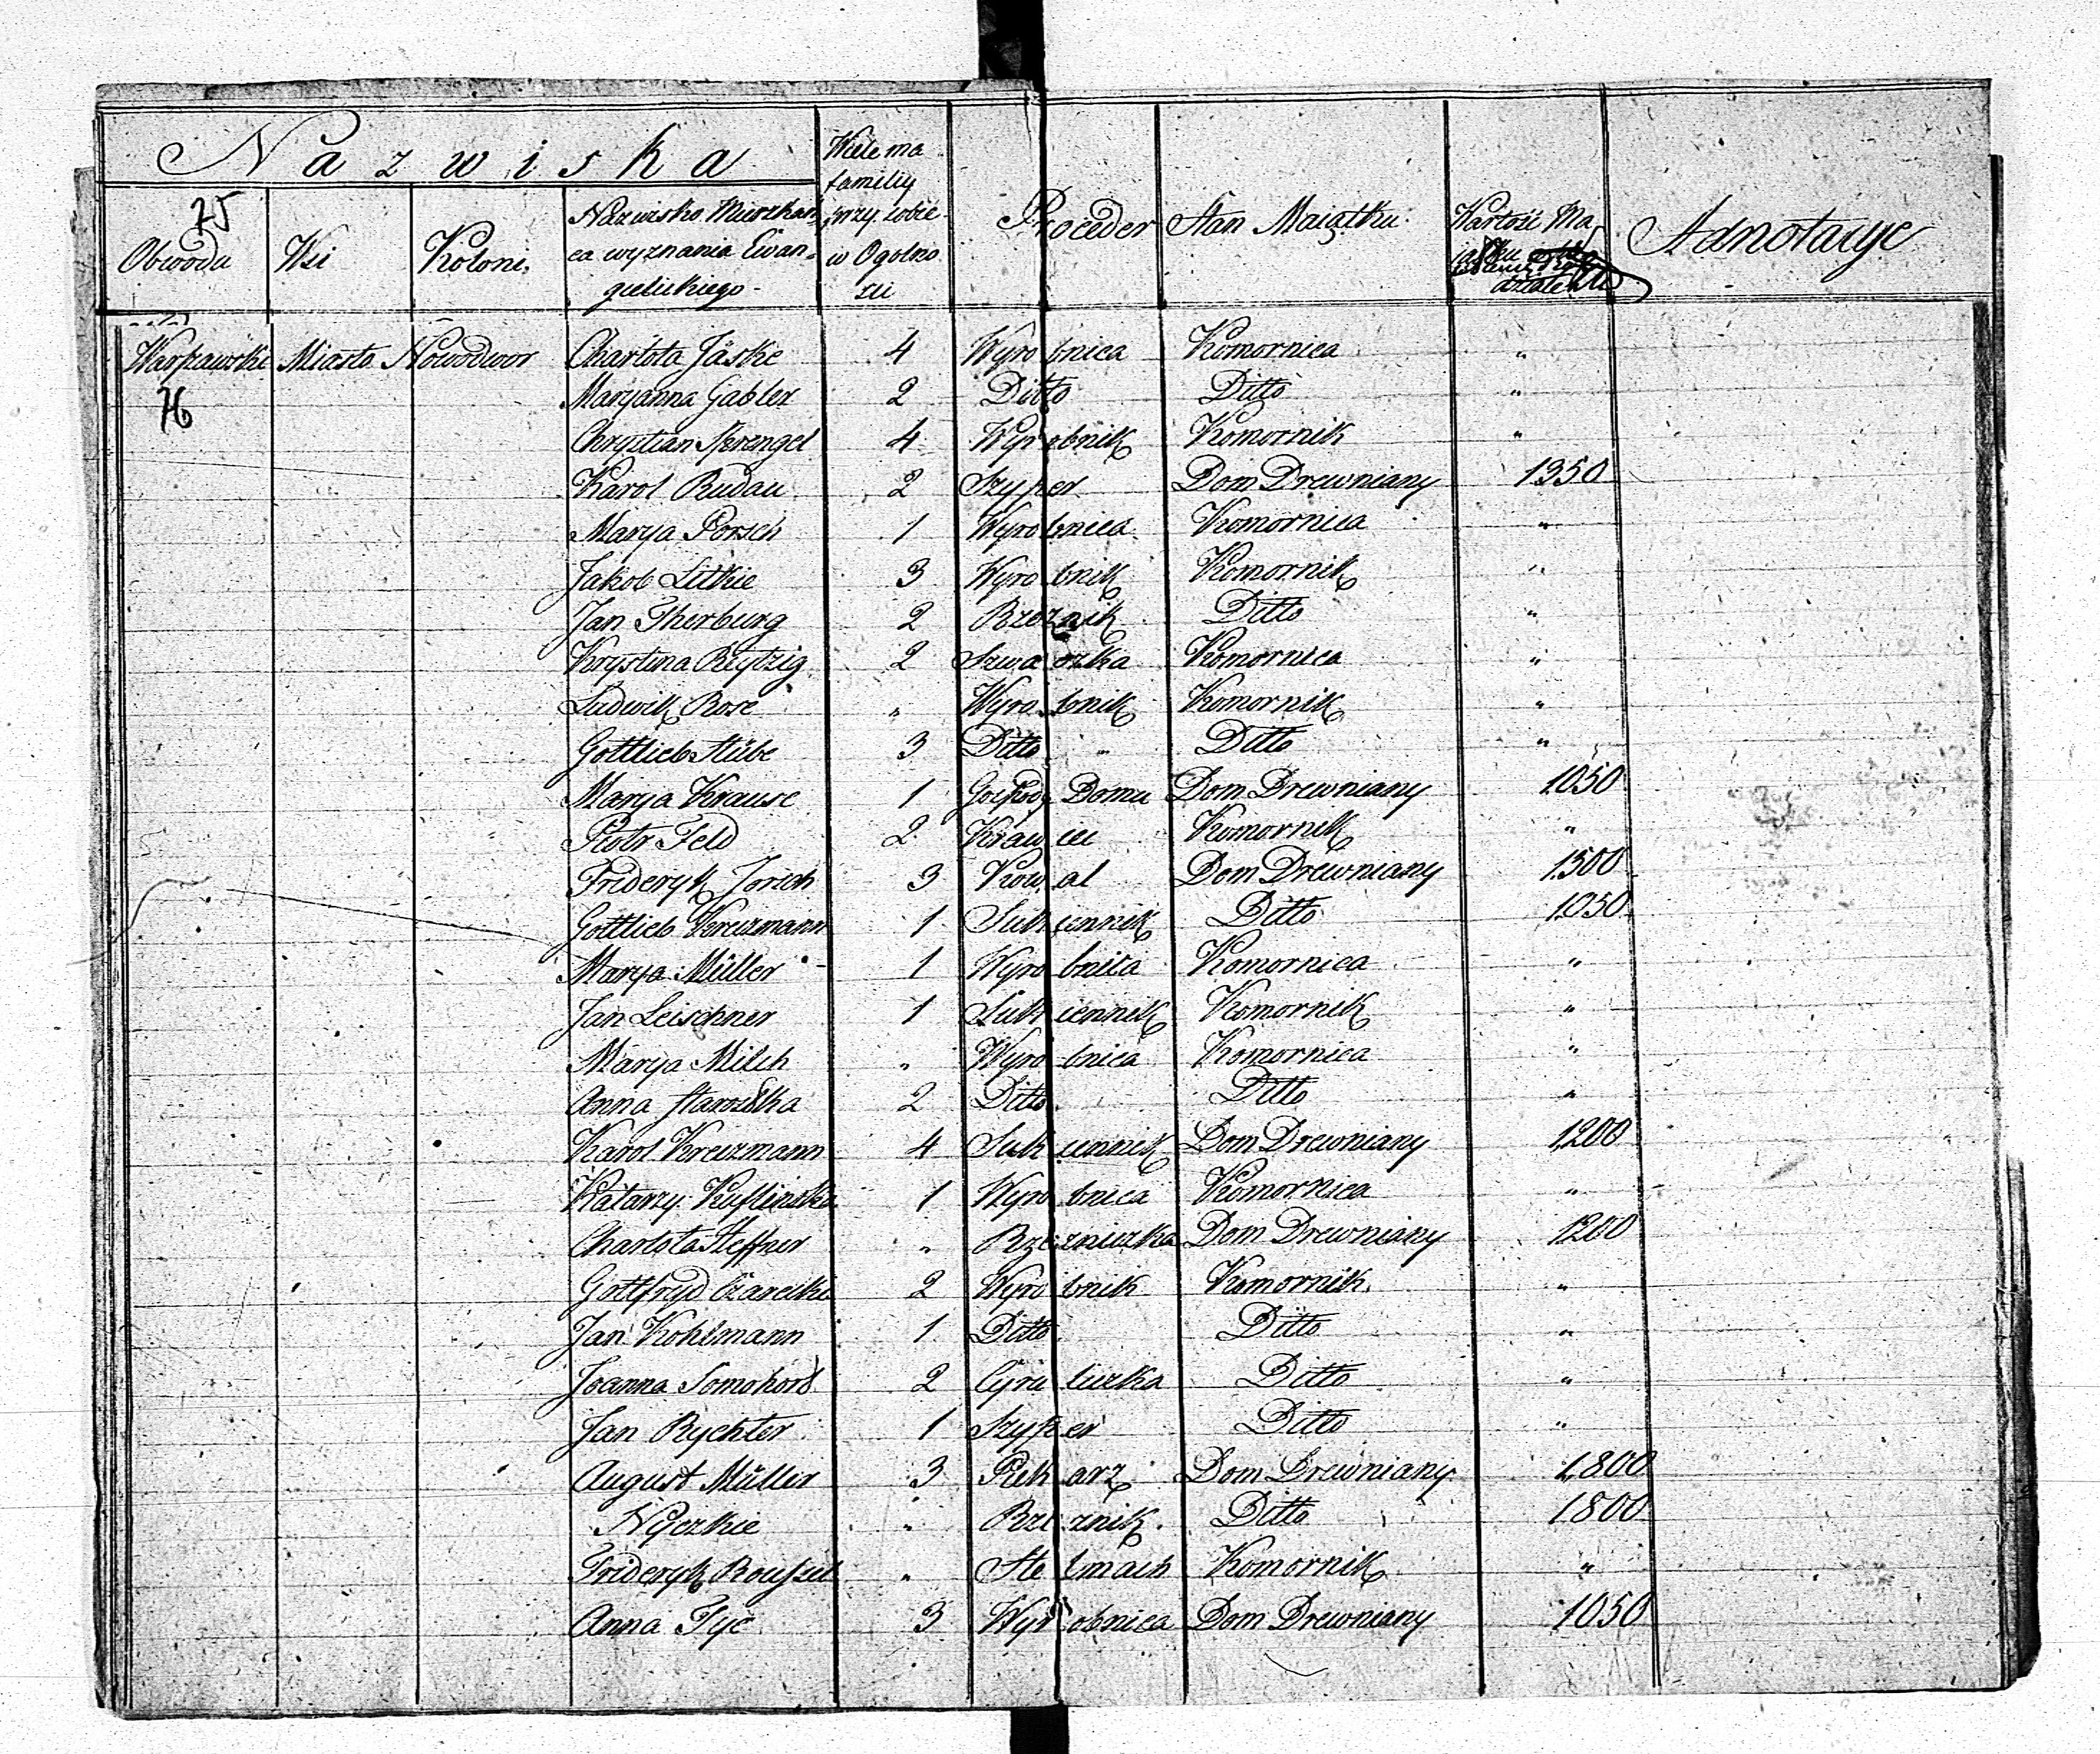 Nazwiska
75
Obwodu Wsi Koloni. Nazwisko Mieszkań-ca wyznania Ewan-gielickiego - Wiele ma familiy przy sobie w Ogolno zci Proceder Stan Maiątku Wartość Ma Adnotacye
Warszawski Miasto Nowodwor Charlota Jäske 4 Wyrobnica Komornica "
76 Maryanna Gabler 2 Ditto Ditto "
Chrystian Sprengel 4 Wyrobnik Komornik "
Karol Rudau 2 Szyper Dom Drewniany 1350
Marya Porsch 1 Wyrobnica Komornica "
Jakob Litkie 3 Wyrobnik Komornik "
Jan Therburg 2 Rzeznik Ditto "
Krystina Rytzig 2 Szwaczka Komornica "
Ludwik Rose " Wyrobnik Komornik "
Gottlieb Stübe 3 Ditto " Ditto "
Marya Krause 1 Gospody Domu Dom Drewniany 1050
Piotr Feld 2 Krawiec Komornik "
Frideryk Jorsch 3 Kowal Dom Drewniany 1500
Gottlieb Kreizmann 1 Sukiennik Ditto 1050
Marya Müller 1 Wyrobnica Komornica "
Jan Leischner 1 Sukiennik Komornik "
Marya Milch " Wyrobnica Komornica "
Anna 2 Ditto Ditto "
Karol Kreizmann 4 Sukiennik Dom Drewniany 1200
Katarzy. Kuflinska 1 Wyrobnica Komornica "
Charlota Heffner " Rzezniczka Dom Drewniany 1200
Gottfryd Czarecki 2 Wyrobnik Komornik "
Jan Kohlmann 1 Ditto Ditto "
Joanna 2 Cyruliczka Ditto "
Jan Rychter 1 Szyper Ditto "
August Müller 3 Piekarz Dom Drewniany 1800
Nyczkie " Rzeznik Ditto 1800
Frideryk Roufzel " Stelmach Komornik "
Anna Tyc 3 Wyrobnica Dom Drewniany 1050